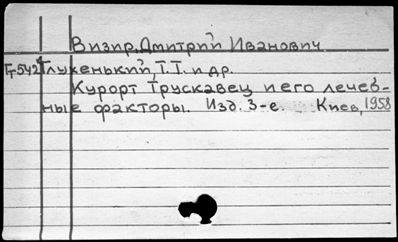 Визир, Дмитрий Иванович
Г-542 Глухенький, Т.Т. и др.
Курорт Трускавец и его лечеб-
ные факторы. Изд. 3-е. Киев, 1958